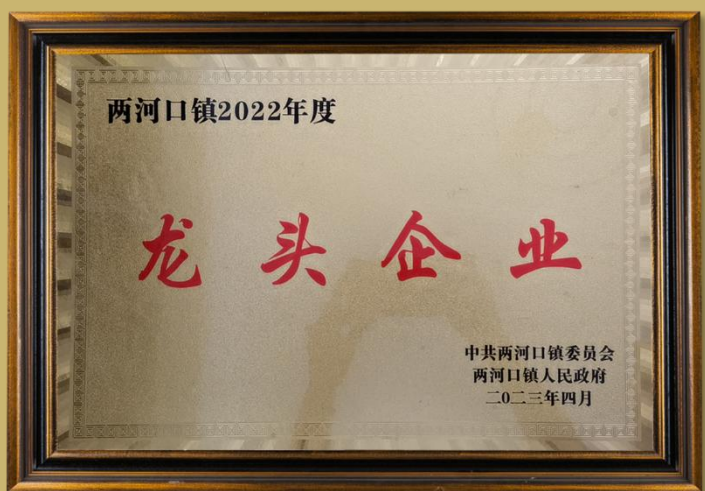 两河口镇2022年度
龙头企业
中共两河口镇委员会
两河口镇人民政府
二0二三年四月